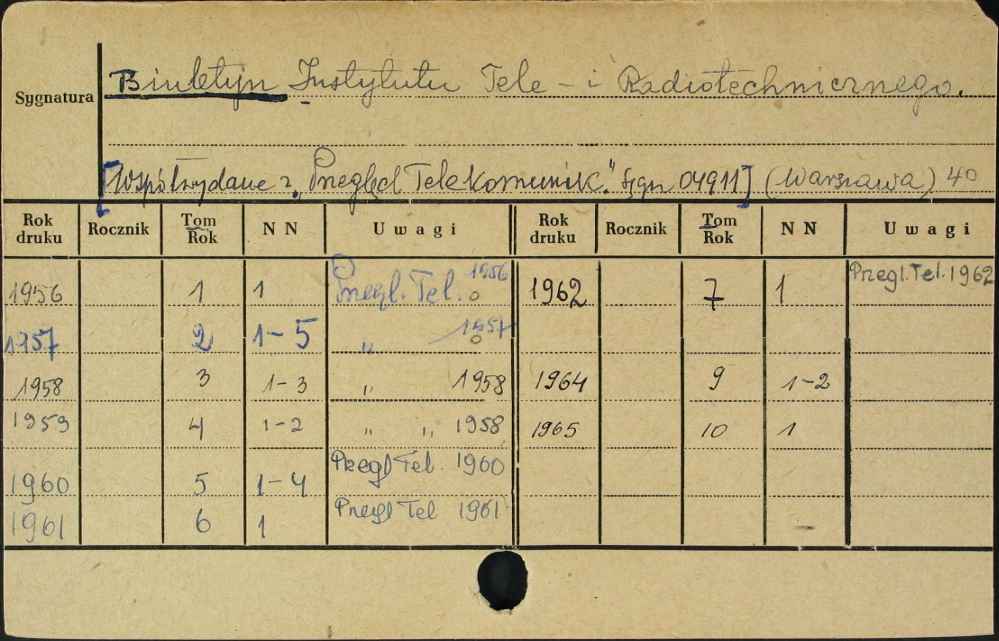 Biuletyn Instytutu Tele - i Radiotechnicznego.
Sygnatura
[Współwydane z „Przegląd Telekomunik." sygn 04911] (Warszawa) 40
Rok druku Rocznik Tom Rok NN Uwagi Rok druku Rocznik Tom Rok NN Uwagi
1956 1 1 Przegl. Tel. 1956 1962 7 1 Przegl. Tel. 1962
1957 2 1-5 „ 1957
1958 3 1-3 „ 1958 1964 9 1-2
1959 4 1-2 „ „ 1958 1965 10 1
1960 5 1-4 Przegl Tel. 1960
1961 6 1 Przegl Tel 1961